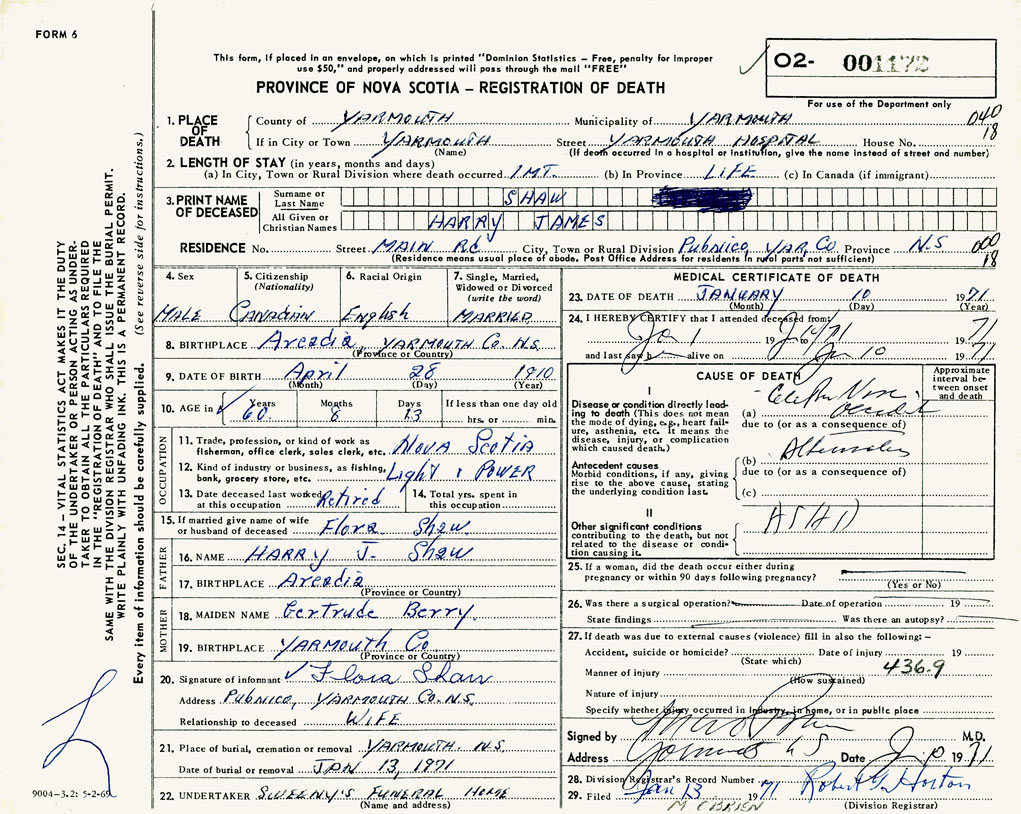 FORM 6
This form, if placed in an envelope, on which is printed "Dominion Statistics – Free, penalty for improper
use $50," and properly addressed will pass through the mail "FREE"
PROVINCE OF NOVA SCOTIA – REGISTRATION OF DEATH
O2- 001172
For use of the Department only
SEC. 14 – VITAL STATISTICS ACT MAKES IT THE DUTY
OF THE UNDERTAKER OR PERSON ACTING AS UNDER-
TAKER TO OBTAIN ALL THE PARTICULARS REQUIRED
IN THE "REGISTRATION OF DEATH" AND TO FILE THE
SAME WITH THE DIVISION REGISTRAR WHO SHALL ISSUE THE BURIAL PERMIT.
WRITE PLAINLY WITH UNFADING INK. THIS IS A PERMANENT RECORD.
Every item of information should be carefully supplied. (See reverse side for instructions.)
1. PLACE OF DEATH
County of YARMOUTH Municipality of YARMOUTH 040
If in City or Town YARMOUTH Street YARMOUTH HOSPITAL House No. 18
(Name) (If death occurred in a hospital or institution, give the name instead of street and number)
2. LENGTH OF STAY (in years, months and days)
(a) In City, Town or Rural Division where death occurred 1 MT. (b) In Province LIFE (c) In Canada (if immigrant)
3. PRINT NAME OF DECEASED
Surname or Last Name SHAW
All Given or Christian Names HARRY JAMES
RESIDENCE No. Street MAIN Rd City, Town or Rural Division Pubnico, YAR. Co Province N.S 000
(Residence means usual place of abode. Post Office Address for residents in rural parts not sufficient) 18
4. Sex 5. Citizenship (Nationality) 6. Racial Origin 7. Single, Married, Widowed or Divorced (write the word)
MALE Canadian English MARRIED
8. BIRTHPLACE Arcadia, YARMOUTH Co. N.S.
(Province or Country)
9. DATE OF BIRTH April 28 1910
(Month) (Day) (Year)
10. AGE in Years Months Days If less than one day old
60 8 13 hrs. or min.
OCCUPATION
11. Trade, profession, or kind of work as
fisherman, office clerk, sales clerk, etc. NOVA SCOTIA
12. Kind of industry or business, as fishing,
bank, grocery store, etc. Light & POWER
13. Date deceased last worked
at this occupation Retired
14. Total yrs. spent in
this occupation
15. If married give name of wife
or husband of deceased Flora Shaw
FATHER
16. NAME HARRY J. Shaw
17. BIRTHPLACE Arcadia
(Province or Country)
MOTHER
18. MAIDEN NAME Gertrude Berry
19. BIRTHPLACE YARMOUTH Co
(Province or Country)
20. Signature of informant Flora Shaw
Address Pubnico, YARMOUTH Co. N.S.
Relationship to deceased WIFE
21. Place of burial, cremation or removal YARMOUTH. N.S.
Date of burial or removal JAN 13, 1971
22. UNDERTAKER SWEENY'S FUNERAL HOME
(Name and address)
9004-3.2: 5-2-69
MEDICAL CERTIFICATE OF DEATH
23. DATE OF DEATH JANUARY 10 1971
(Month) (Day) (Year)
24. I HEREBY CERTIFY that I attended deceased from
Jan 1 19 71
and last saw h alive on Jan 10 1971
CAUSE OF DEATH
Approximate interval between onset and death
I
Disease or condition directly leading to death (This does not mean the mode of dying, e.g., heart failure, asthenia, etc. It means the disease, injury, or complication which caused death.)
(a)
due to (or as a consequence of)
Antecedent causes
Morbid conditions, if any, giving rise to the above cause, stating the underlying condition last.
(b)
due to (or as a consequence of)
(c)
II
Other significant conditions contributing to the death, but not related to the disease or condition causing it.
ASHD
25. If a woman, did the death occur either during
pregnancy or within 90 days following pregnancy?
(Yes or No)
26. Was there a surgical operation? Date of operation 19
State findings Was there an autopsy?
27. If death was due to external causes (violence) fill in also the following:–
Accident, suicide or homicide? Date of injury 19
(State which)
Manner of injury 436.9
(How sustained)
Nature of injury
Specify whether injury occurred in industry, in home, or in public place
Signed by M.D.
Address Date 1971
28. Division Registrar's Record Number
29. Filed Jan 13 1971 Robert G. Horton
(Division Registrar)
M O'BRIEN